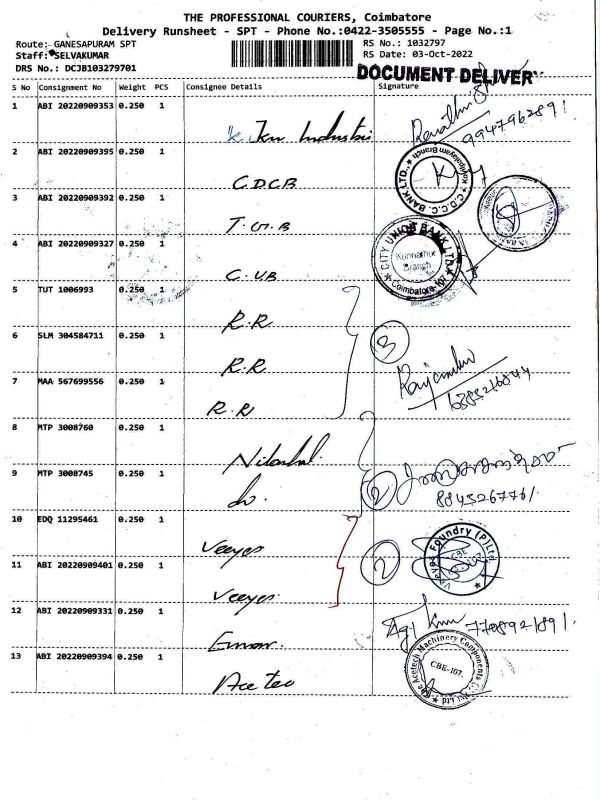 THE PROFESSIONAL COURIERS, Coimbatore
Delivery Runsheet - SPT - Phone No.:0422-3505555 - Page No.:1
Route: GANESAPURAM SPT
RS No.: 1032797
Staff: SELVAKUMAR
RS Date: 03-Oct-2022
DRS No.: DCJB103279701
DOCUMENT DELIVER
S No Consignment No Weight PCS Consignee Details Signature
1 ABI 20220909353 0.250 1
9947962891
2 ABI 20220909395 0.250 1 C.D.C.B
C.D.C.C. BANK LTD.,
3 ABI 20220909392 0.250 1 T.M.B
4 ABI 20220909327 0.250 1 C.UB
CITY UNION BANK LTD
Kunnathur
Branch
Coimbatore-107
5 TUT 1006993 0.250 1 R.R
6 SLM 304584711 0.250 1 R.R
3
7 MAA 567699556 0.250 1 R.R
8 MTP 3008760 0.250 1
9 MTP 3008745 0.250 1 do.
2
10 EDQ 11295461 0.250 1 Veeyes
11 ABI 20220909401 0.250 1 Veeyes
2
Veeyes Foundry (P) Ltd
12 ABI 20220909331 0.250 1
7708921891
13 ABI 20220909394 0.250 1 Ace tec
The Acetech Machinery Components (I) Pvt Ltd
CBE-107.